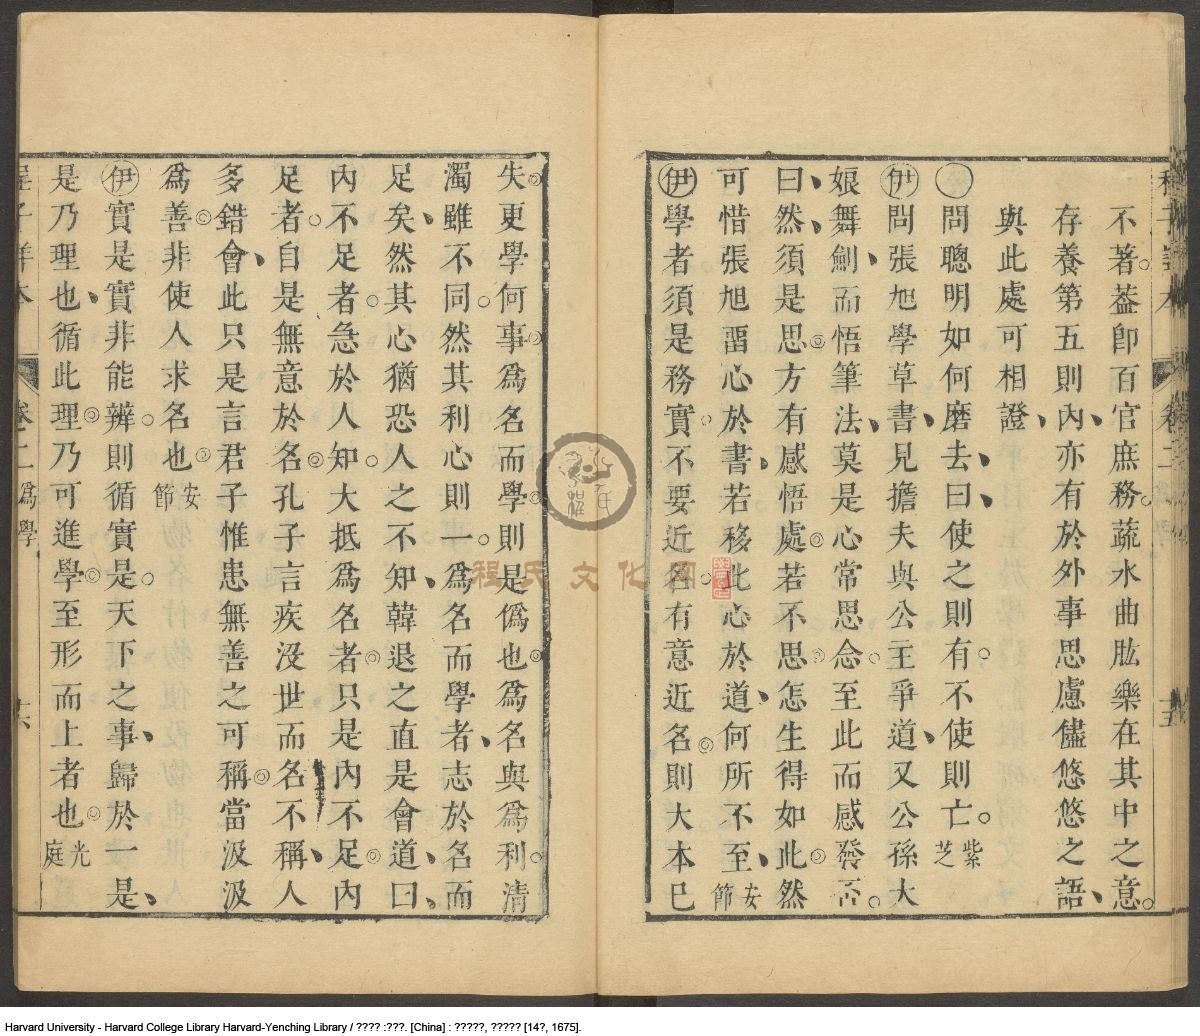 不著葢卽百官庶務蔬水曲肱樂在其中之意
存養第五則內亦有於外事思慮儘悠悠之語
與此處可相證
問聰明如何磨去曰使之則有不使則亡紫芝
伊問張旭學草書見擔夫與公主爭道又公孫大
娘舞劍而悟筆法莫是心常思念至此而感發否
曰然須是思方有感悟處若不思怎生得如此然
可惜張旭畱心於書若移此心於道何所不至安節
伊學者須是務實不要近名有意近名則大本已
失更學何事爲名而學則是僞也爲名與爲利清
濁雖不同然其利心則一爲名而學者志於名而
足矣然其心猶恐人之不知韓退之直是會道曰
內不足者急於人知大抵爲名者只是內不足內
足者自是無意於名孔子言疾沒世而名不稱人
多錯會此只是言君子惟患無善之可稱當汲汲
爲善非使人求名也安節
伊實是實非能辨則循實是天下之事歸於一是
是乃理也循此理乃可進學至形而上者也光庭
卷二 爲學
程氏文化网
Harvard University - Harvard College Library Harvard-Yenching Library / ???? :???. [China] : ?????, ????? [14?, 1675].